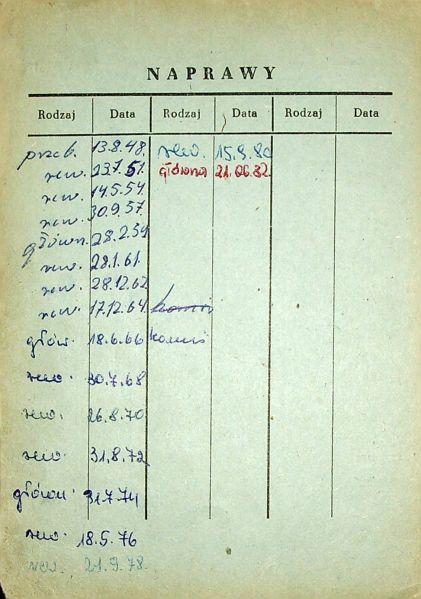 NAPRAWY
Rodzaj Data Rodzaj Data Rodzaj Data
przeb. 13.8.48. rew. 15.9.80
rew. 23.7.51. główna 21.06.82.
rew. 14.5.54.
rew. 30.9.57.
główn. 28.2.59
rew. 28.1.61.
rew. 28.12.62
rew. 17.12.64.
głów. 18.6.66
rew. 30.7.68
rew. 26.8.70
rew. 31.8.72
główn. 31.7.74
rew. 18.5.76
rew. 21.9.78.